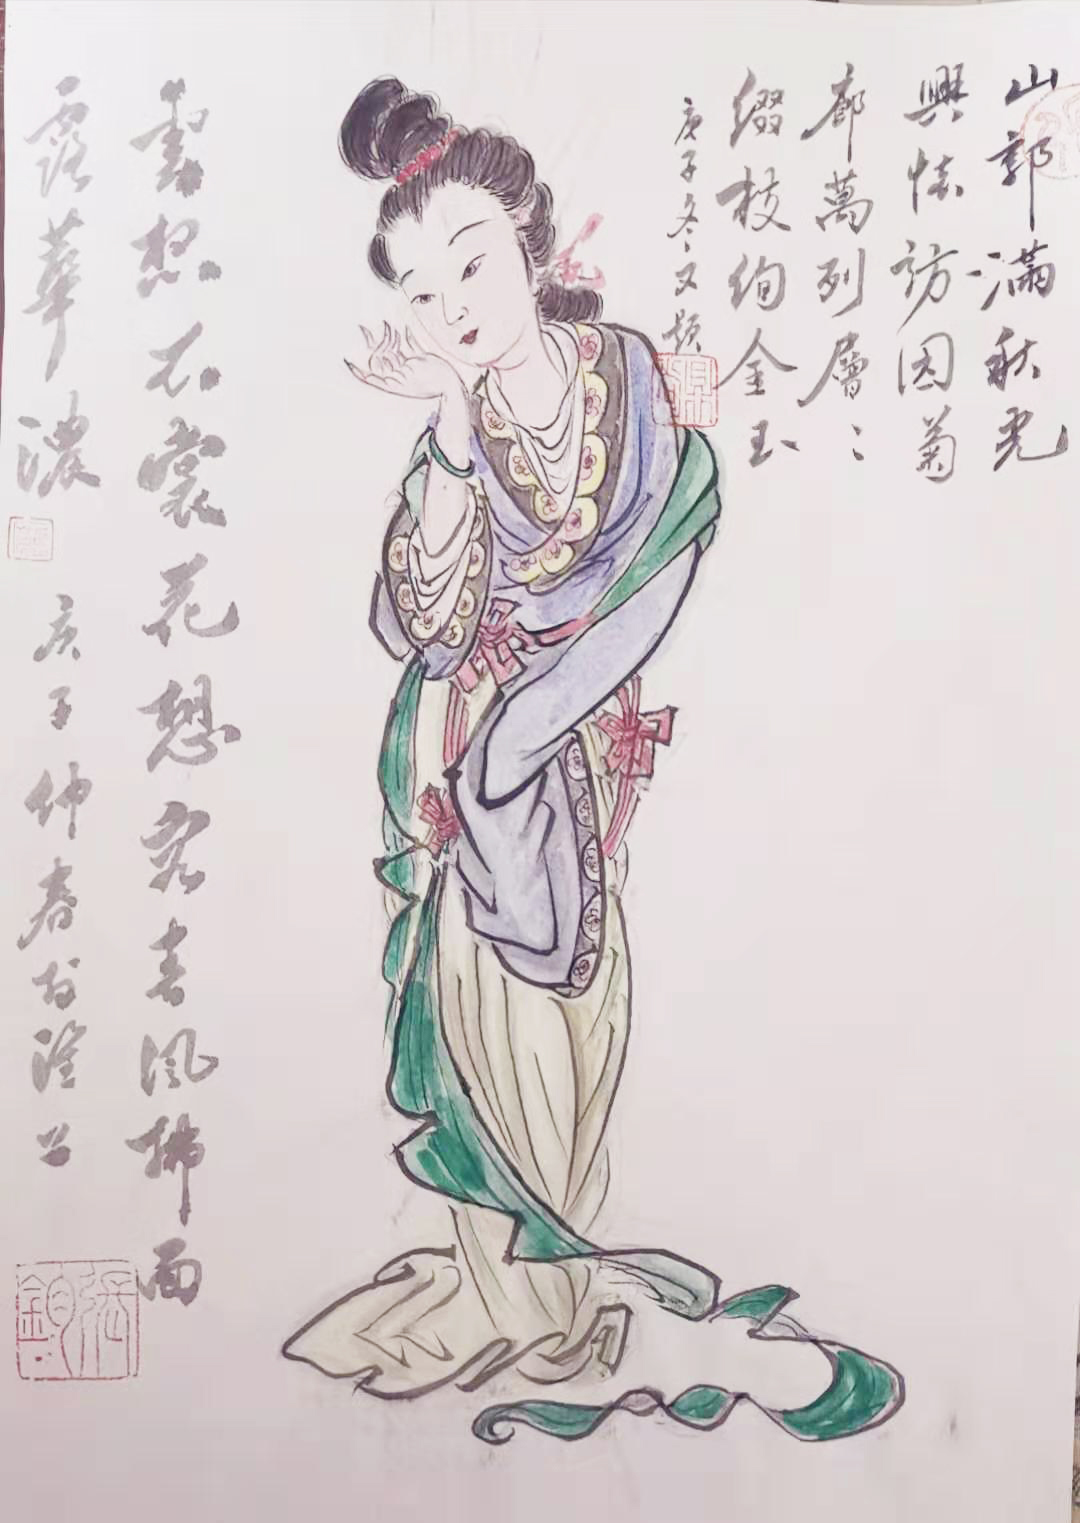 山郭滿秋光
興 訪因菊
廊萬列層〻
綴枝絢金玉
庚子冬又題
雲想衣裳花想容春風拂面
露華濃
庚子仲春於澄
張鈞